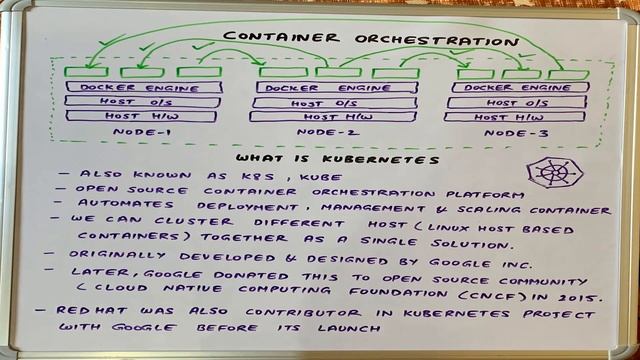 CONTAINER ORCHESTRATION
DOCKER ENGINE DOCKER ENGINE DOCKER ENGINE
HOST O/S HOST O/S HOST O/S
HOST H/W HOST H/W HOST H/W
NODE-1 NODE-2 NODE-3
WHAT IS KUBERNETES
- ALSO KNOWN AS K8S, KUBE
- OPEN SOURCE CONTAINER ORCHESTRATION PLATFORM
- AUTOMATES DEPLOYMENT, MANAGEMENT & SCALING CONTAINER
- WE CAN CLUSTER DIFFERENT HOST (LINUX HOST BASED
CONTAINERS) TOGETHER AS A SINGLE SOLUTION.
- ORIGINALLY DEVELOPED & DESIGNED BY GOOGLE INC.
- LATER, GOOGLE DONATED THIS TO OPEN SOURCE COMMUNITY
( CLOUD NATIVE COMPUTING FOUNDATION (CNCF) IN 2015.
- REDHAT WAS ALSO CONTRIBUTOR IN KUBERNETES PROJECT
WITH GOOGLE BEFORE ITS LAUNCH